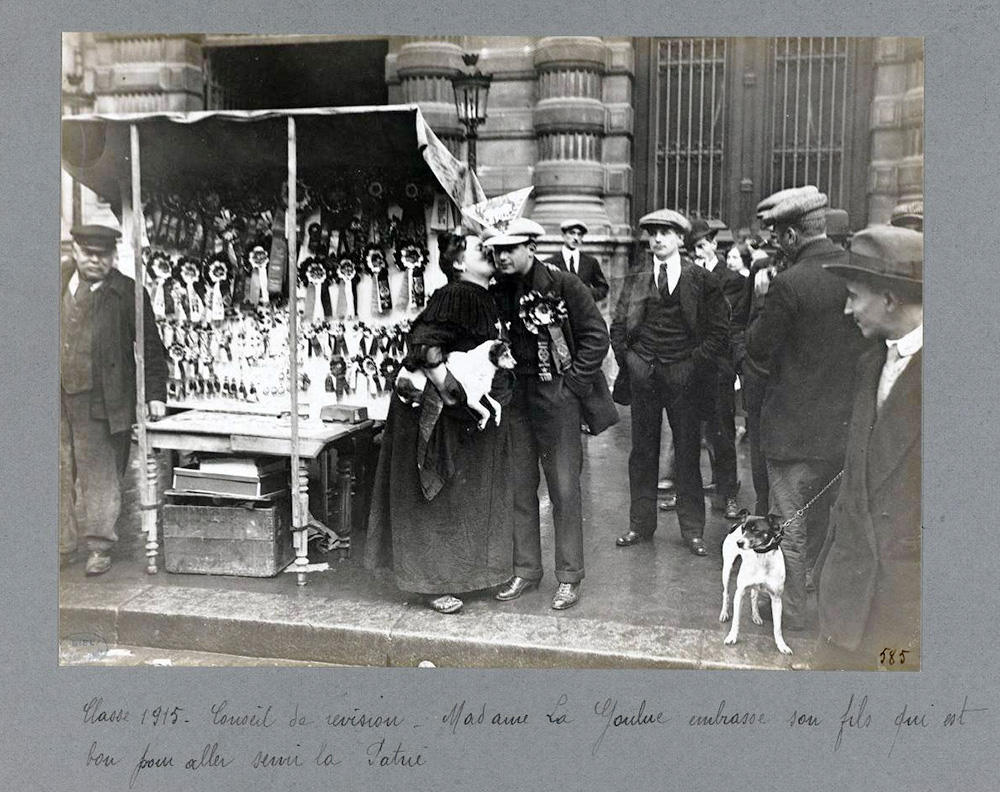 585
Classe 1915 - Conseil de revision - Madame La Goulue embrasse son fils qui est
bon pour aller servir la Patrie